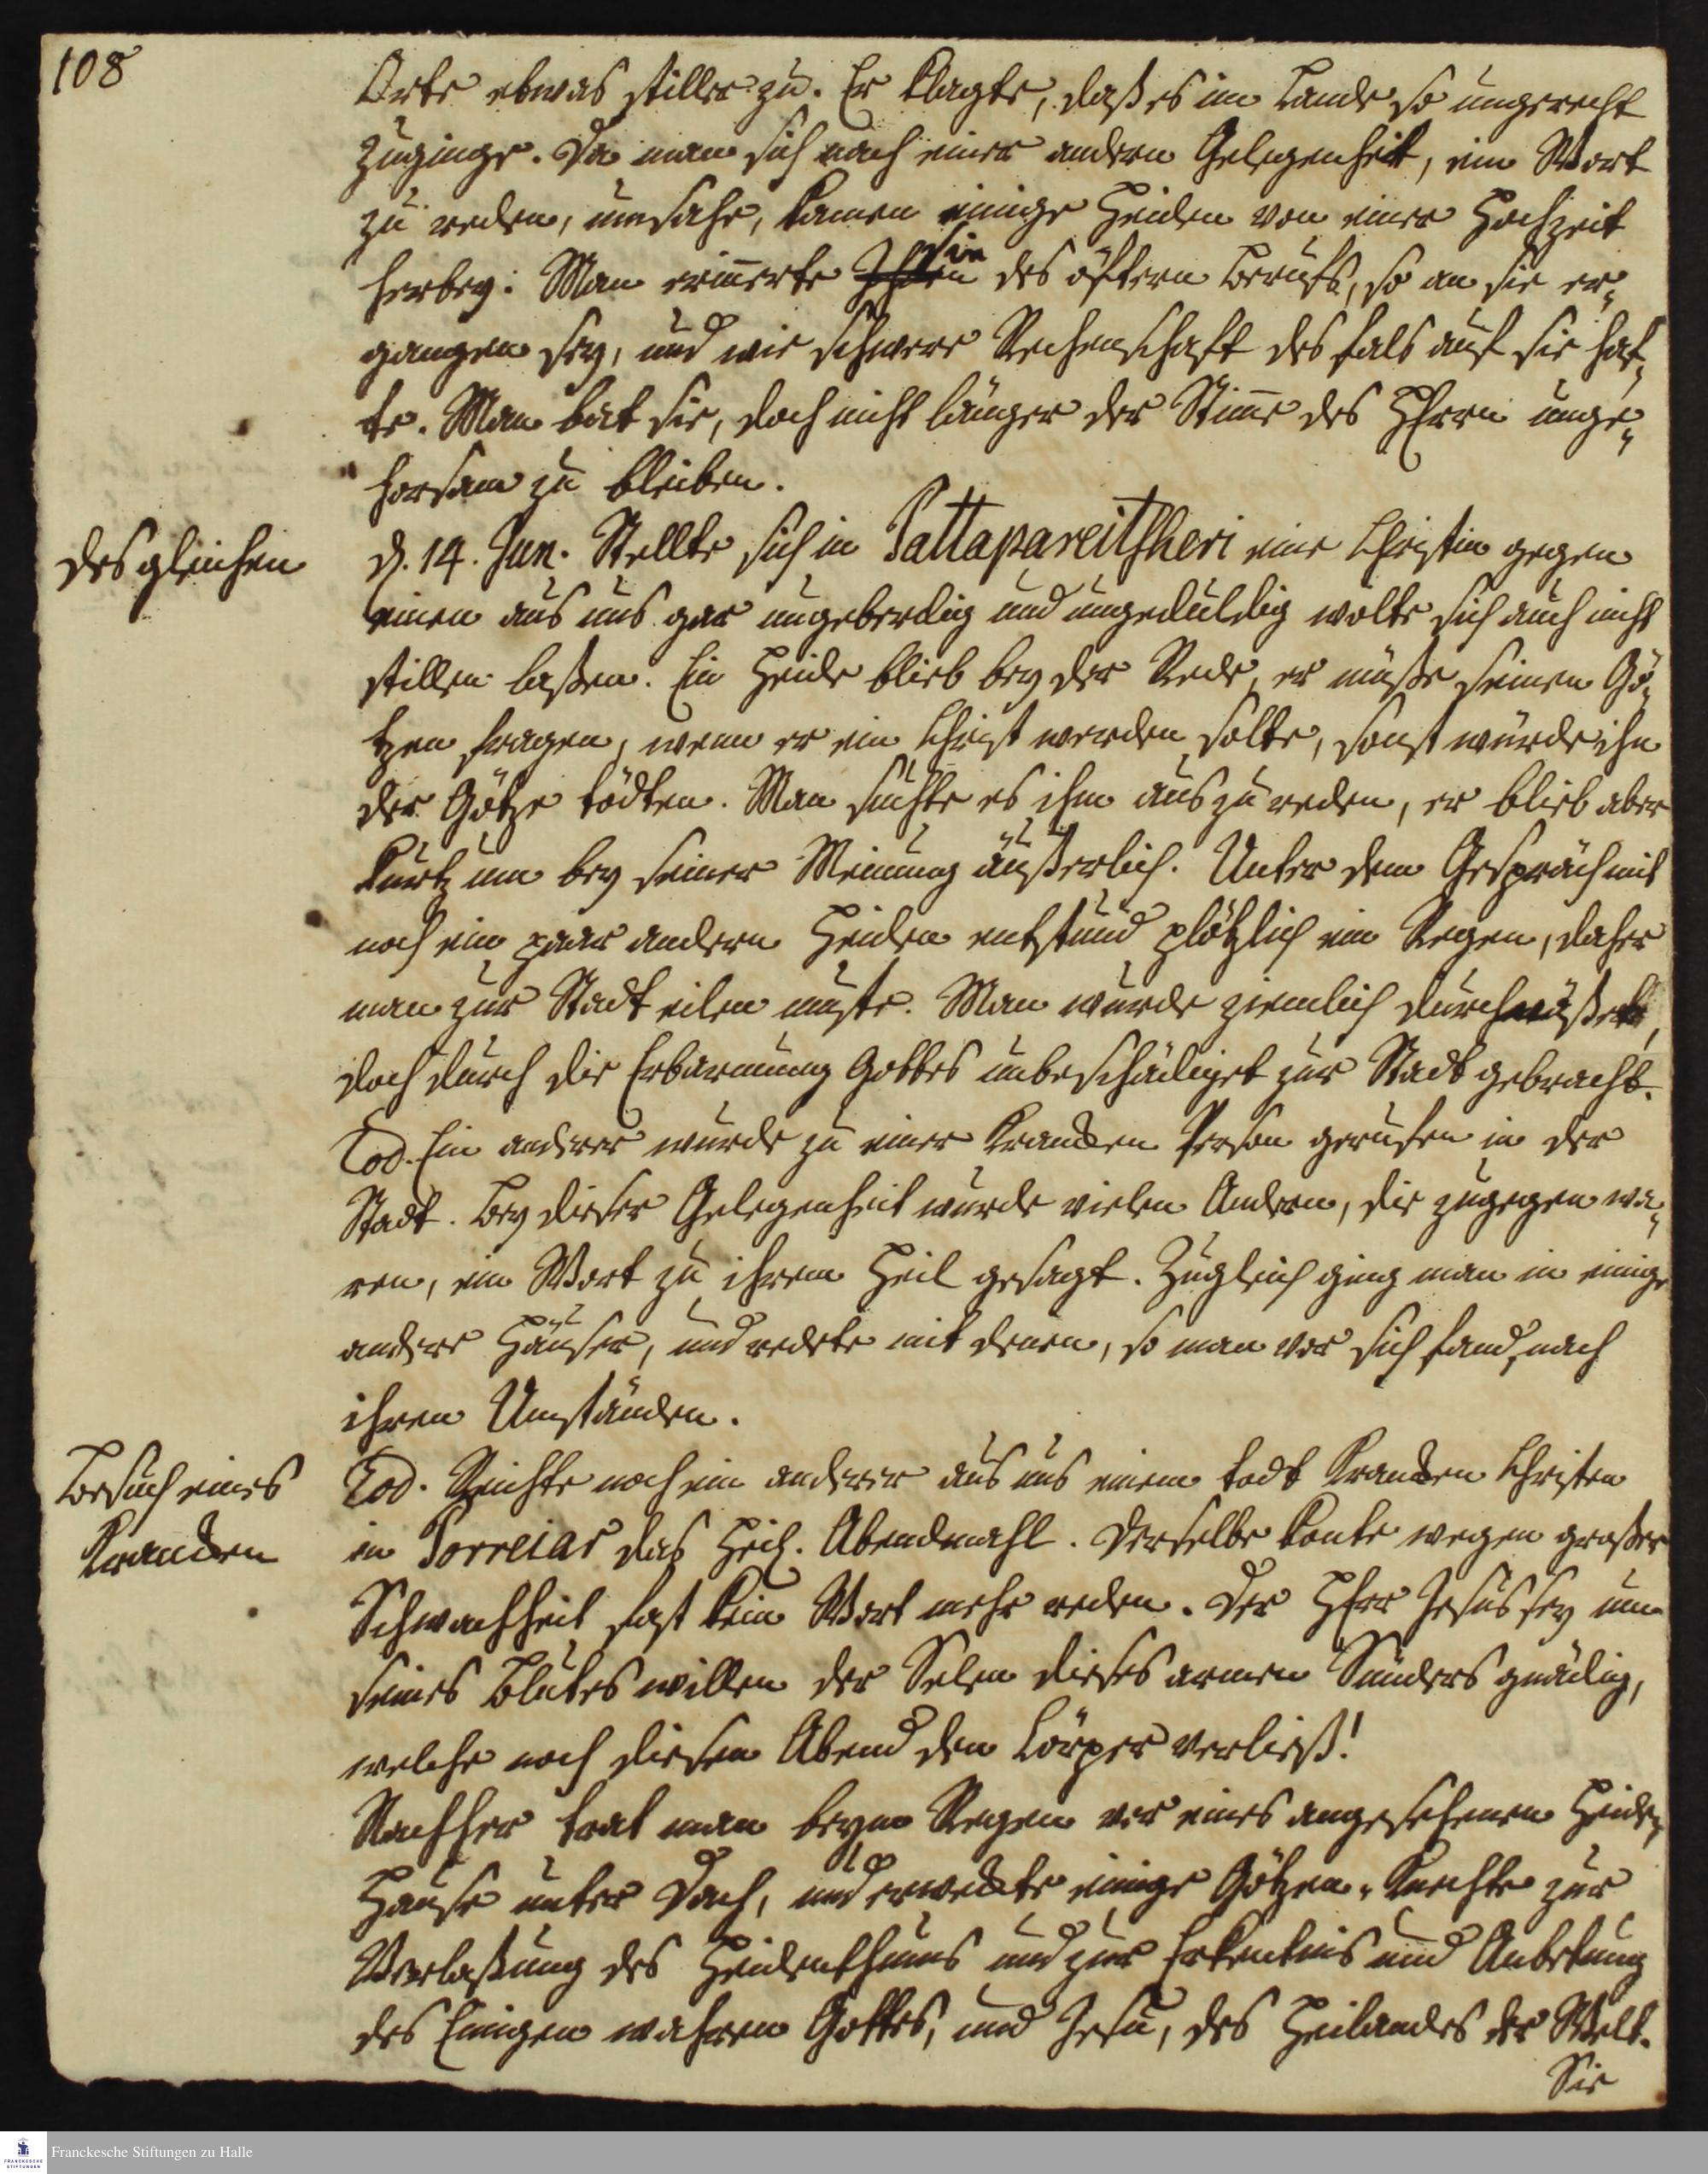 108
Orte etwas stiller zu. Er klagte, daß es im Lande so ungerecht
zuginge. Da man sich nach einer andern Gelegenheit, ein Wort
zu reden, umsahe, kamen einige Heiden von einer Hochzeit
herbey: Man erin̅erte sie des öftern Berufs, so an sie er¬
gangen sey, und wie schwere Rechenschaft desfals auf sie haf¬
te. Man bat sie, doch nicht länger der Stim̅e des HErrn unge¬
horsam zu bleiben.
desgleichen
d. 14. Jun. Stellte sich in Pattapareitscheri eine Christin gegen
einen aus uns gar ungeberdig und ungeduldig wolte sich auch nicht
stillen laßen. Ein Heide blieb bey der Rede, er müße seinen Gö¬
tzen fragen, wenn er ein Christ werden solte, sonst würde ihn
der Götze tödten. Man suchte es ihm auszureden, er blieb aber
kurtz um bey seiner Meinung äußerlich. Unter dem Gespräch mit
noch ein paar andern Heiden entstund plötzlich ein Regen, daher
man zur Stadt eilen muste. Man wurde ziemlich durchnäßet,
doch durch die Erbarmung Gottes unbeschädiget zur Stadt gebracht.
Eod. Ein anderer wurde zu einer krancken Person gerufen in der
Stadt. Bey dieser Gelegenheit wurde vielen Andern, die zugegen wa¬
ren, ein Wort zu ihrem Heil gesagt. Zugleich ging man in einige
andere Häuser, und redete mit denen, so man vor sich fand, nach
ihren Umständen.
Besuch eines
Krancken
Eod. Reichte noch ein anderer aus uns einem todt krancken Christen
in Porreiar das Heil. Abendmahl. Derselbe konte wegen großer
Schwachheit fast kein Wort mehr reden. Der HErr Jesus sey um
seines Blutes willen der Selen dieses armen Sünders gnädig,
welche noch diesen Abend den Cörper verließ!
Nachher trat man beym Regen vor eines angesehenen Heiden
Hause unter Dach, und erweckte einige Götzen-Knechte zur
Verlaßung des Heidenthums und zur Erkentnis und Anbetung
des Einigen wahren Gottes, und Jesu, des Heilandes der Welt.
Sie
Franckesche Stiftungen zu Halle
FRANCKESCHE
STIFTUNGEN